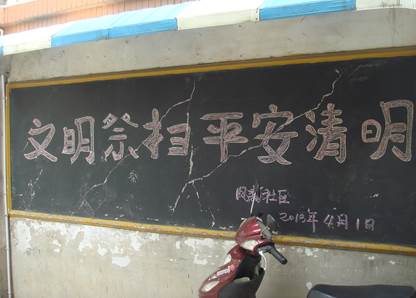 文明祭扫 平安清明
社区
2013年4月1日